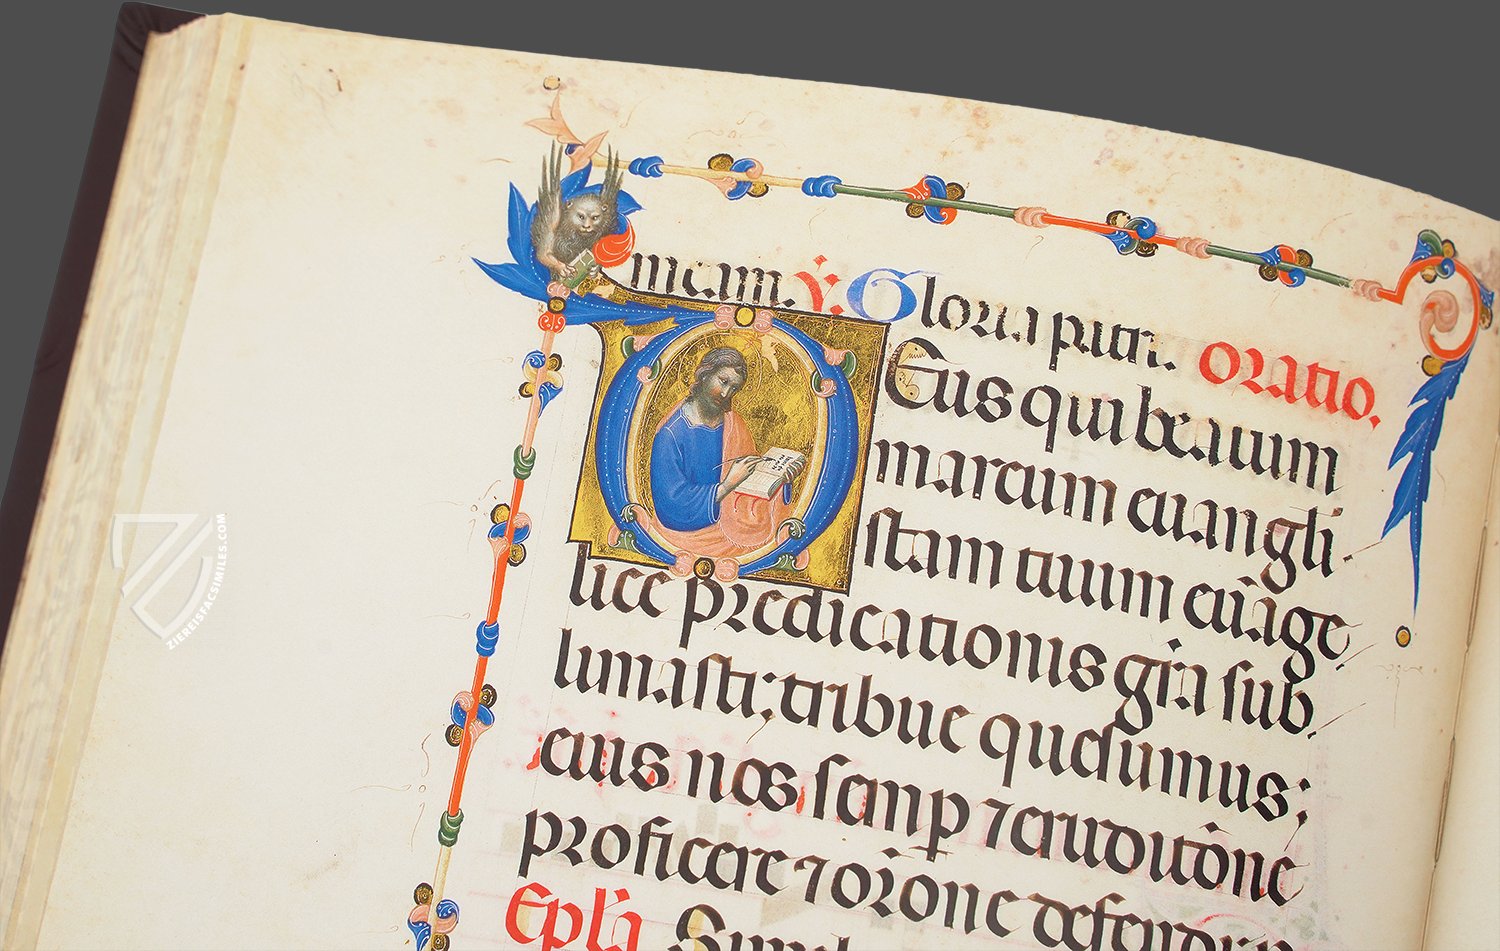 nicam. ℣. Gloria patri. oratio.
Eus qui beatum
marcum euangli
stam tuum euāge
lice predicationis gr̄a sub
limasti; tribue quesumus;
eius nos semp ⁊ eruditiōne
proficere ⁊ or̄one defendi
Epl̄a. Simil
ZIEREISFACSIMILES.COM